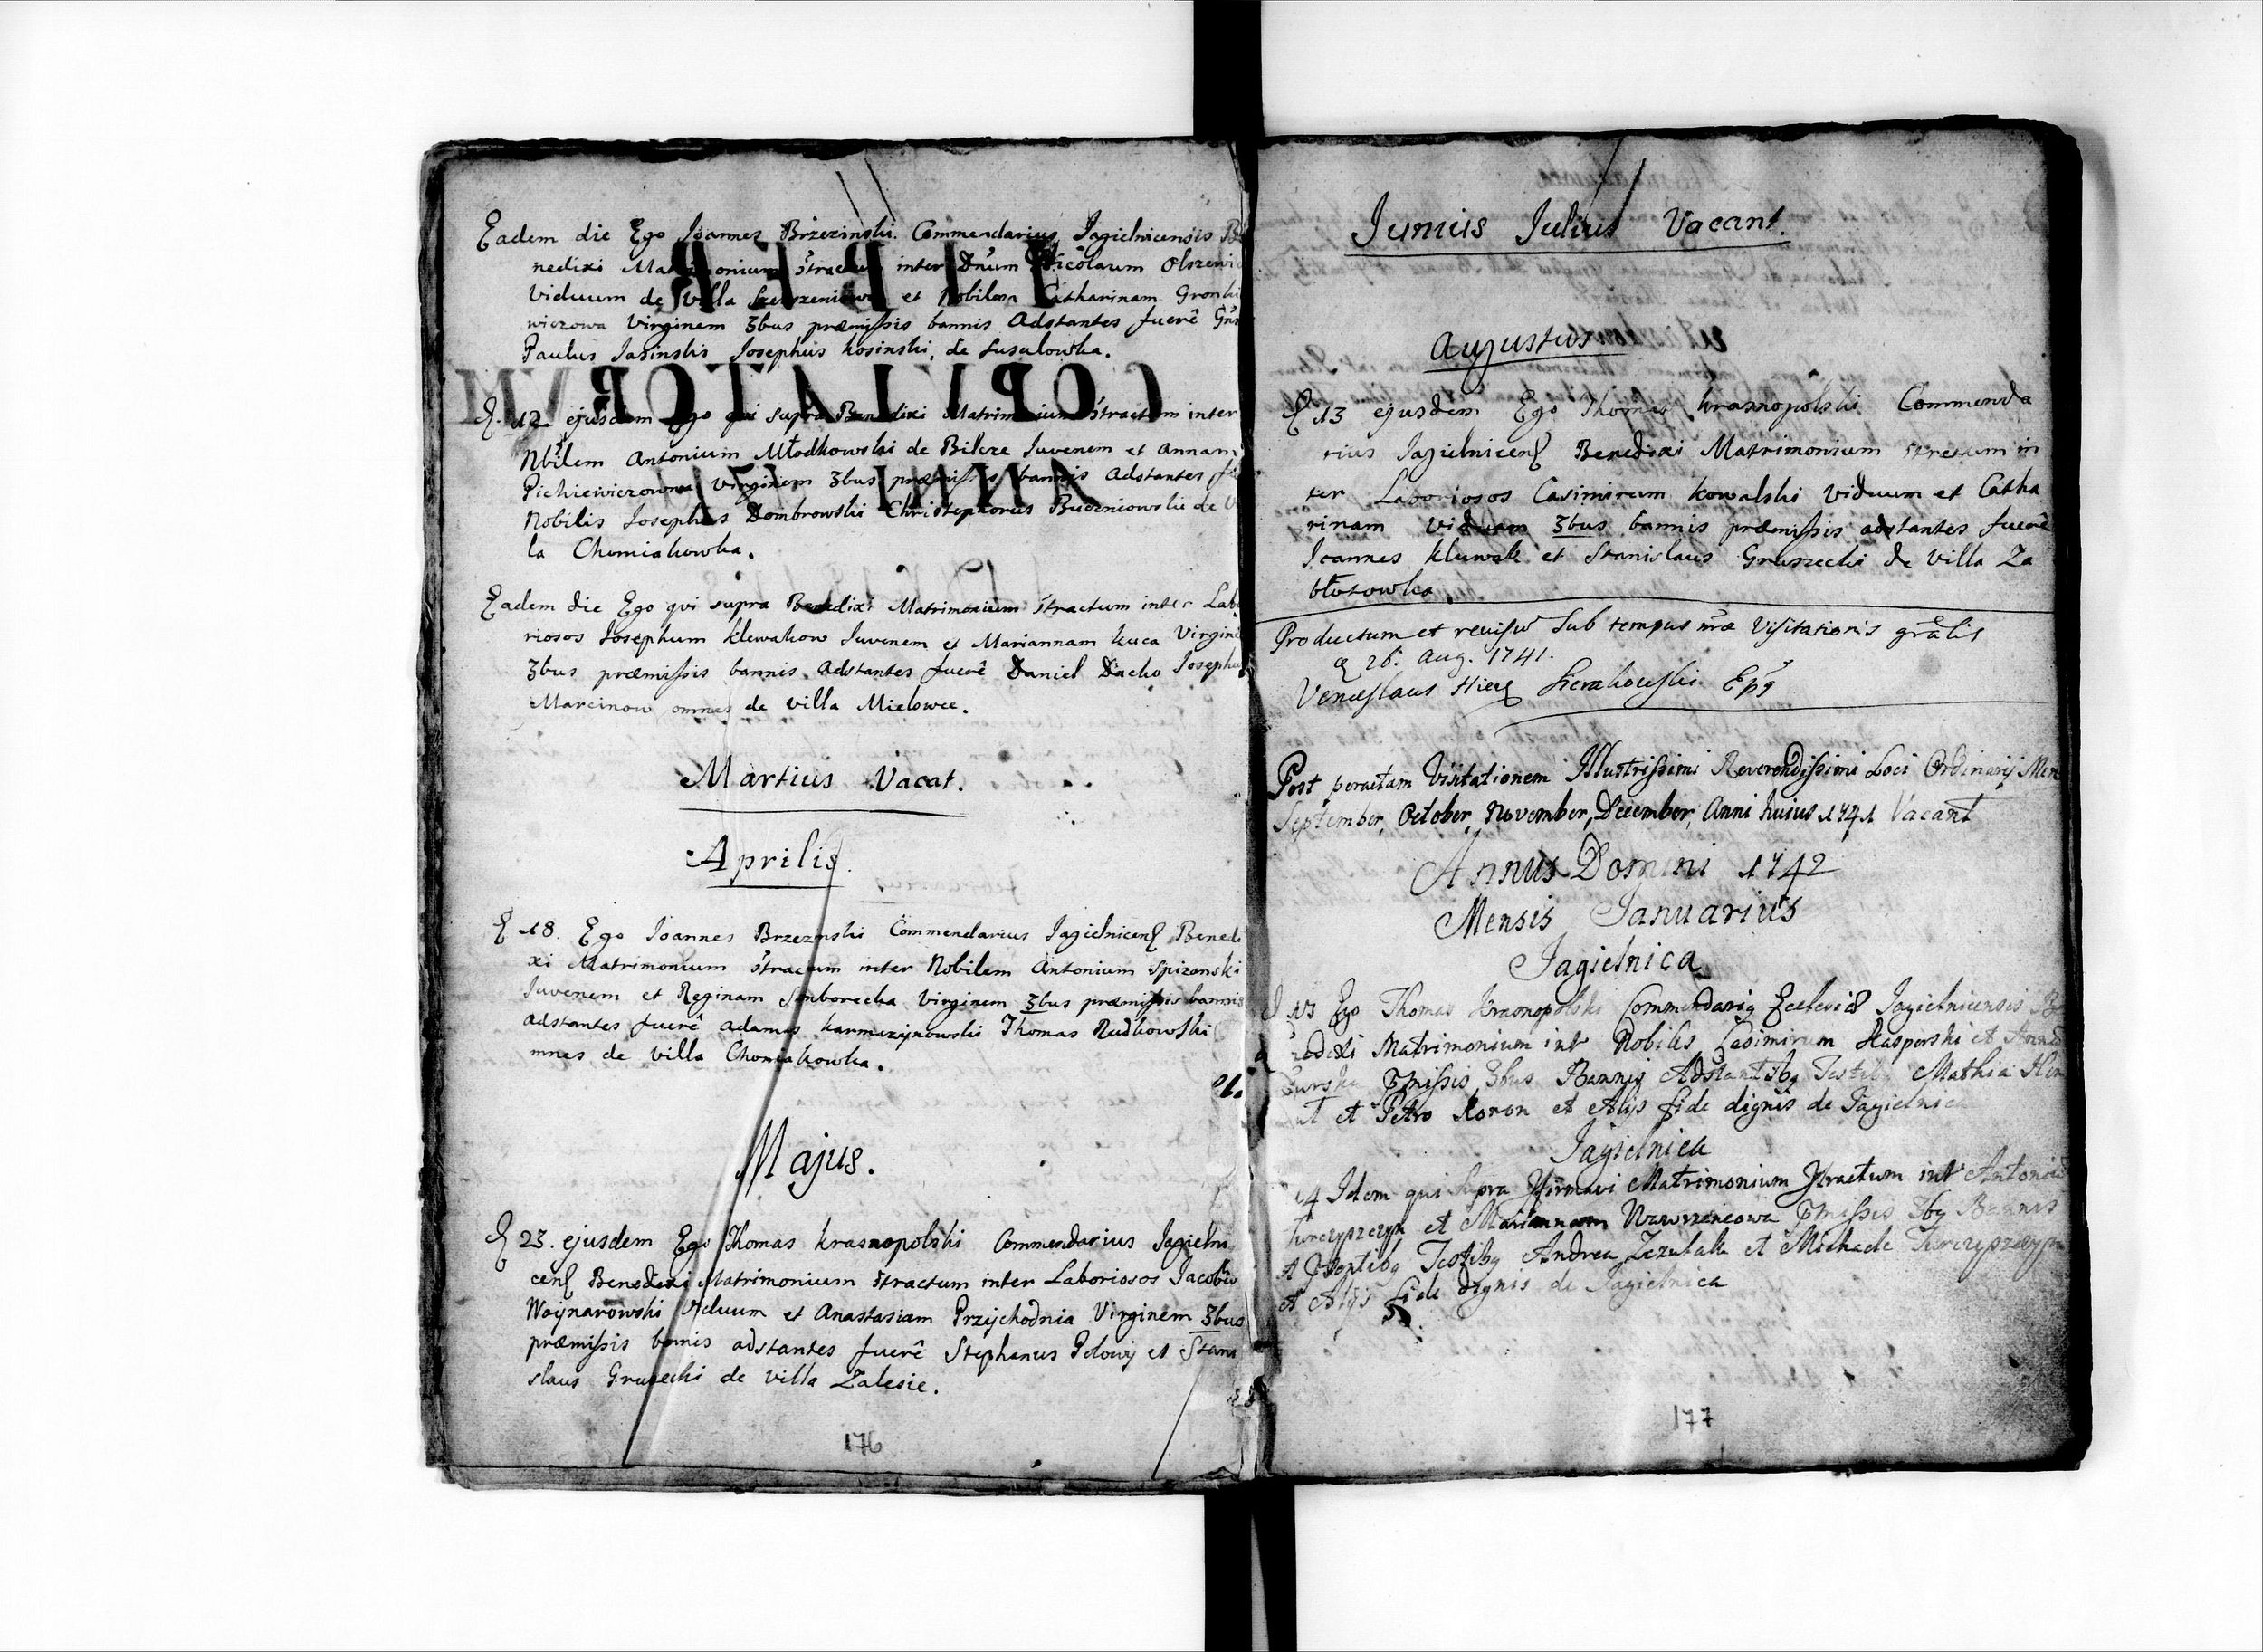 Eadem die Ego Joannes Brzezinski Commendarius Jagielnicensis Be
nedixi Matrimonium ɔ̃tractum inter Dnum Nicolaum Olszewi
Viduum de Villa et Nobilem Catharinam Gronki
wiczowa Virginem 3bus præmissis bannis Adstantes fuerê
Paulus Jasinski Josephus kosinski, de Susulowka.
12 ejusdem Ego qui supra Benedixi Matrimonium ɔ̃tractum inter
Nbilem Antonium Młodkowski de Bilcze Juvenem et Annam
Pichiewiczowna Virginem 3bus præmissis bannis Adstantes fu
Nobilis Josephus Dombrowski Christophorus Buczniowski de Vi
la Chomiakowka.
Eadem die Ego qui supra Benedixi Matrimonium ɔ̃tractum inter Labo
riosos Josephum klewakow Juvenem et Mariannam kuca Virgine
3bus præmissis bannis Adstantes fuerê Daniel Dacko Josephu
Marcinow omnes de villa Mielowce.
Martius Vacat.
Aprilis.
18. Ego Joannes Brzezinski Commendarius Jagielnicen Benedi
xi Matrimonium ɔ̃tractum inter Nobilem Antonium Spizenski
Juvenem et Reginam Semborecka Virginem 3bus præmissis bannis
Adstantes fuerê Adamus karmazynowski Thomas Rudkowski
mnes de villa Chomiakowka.
Majus.
23. ejusdem Ego Thomas krasnopolski Commendarius Jagielni
cen Benedixi Matrimonium ɔ̃tractum inter Laboriosos Jacobũ
Woynarowski Viduum et Anastasiam Przychodnia Virginem 3bus
præmissis bannis adstantes fuerê Stephanus Polowy et Stani
slaus Grusecki de villa Zalesie.
176
Junius Julius Vacant.
Augustus
13 ejusdem Ego Thomas krasnopolski Commenda
rius Jagielnicen Benedixi Matrimonium ɔ̃tractum in
ter Laboriosos Casimirum kowalski Viduum et Catha
rinam Viduam 3bus bannis præmissis adstantes fuerê
Joannes kluwak et Stanislaus Gruszecki de Villa Za
błotowka.
Productum et revisũ Sub tempus nr̃æ Visitationis gr̃alis
26. Aug. 1741.
Venceslaus Hier Sierakowski Epꝰ
Post peractam Visitationem Illustrissimi Reverendissimi Loci Ordinarij Men
September, October, November, December, Anni huius 1741 Vacant
Annus Domini 1742
Mensis Januarius
Jagielnica
Ego Thomas Krasnopolski Commendariꝰ Ecclesiæ Jagielnicensis Be
nedixi Matrimonium intʳ Nobiles Casimirum Kasperski et Annã
p̃missis 3bus Bannis Adstantibꝰ Testibꝰ Mathia
et Petro Koron et Alijs fide dignis de Jagielnic
Jagielnica
Idem qui Supra ɔfirmavi Matrimonium ɔtractum intʳ Antoniũ
Turczypczyn et Mariannam Wawrzencowa p̃missis 3bꝰ Bannis
et p̃sentibꝰ Testibꝰ Andrea Zezulak et Michaele Turczypczyn
et Alijs fide dignis de Jagielnica
177